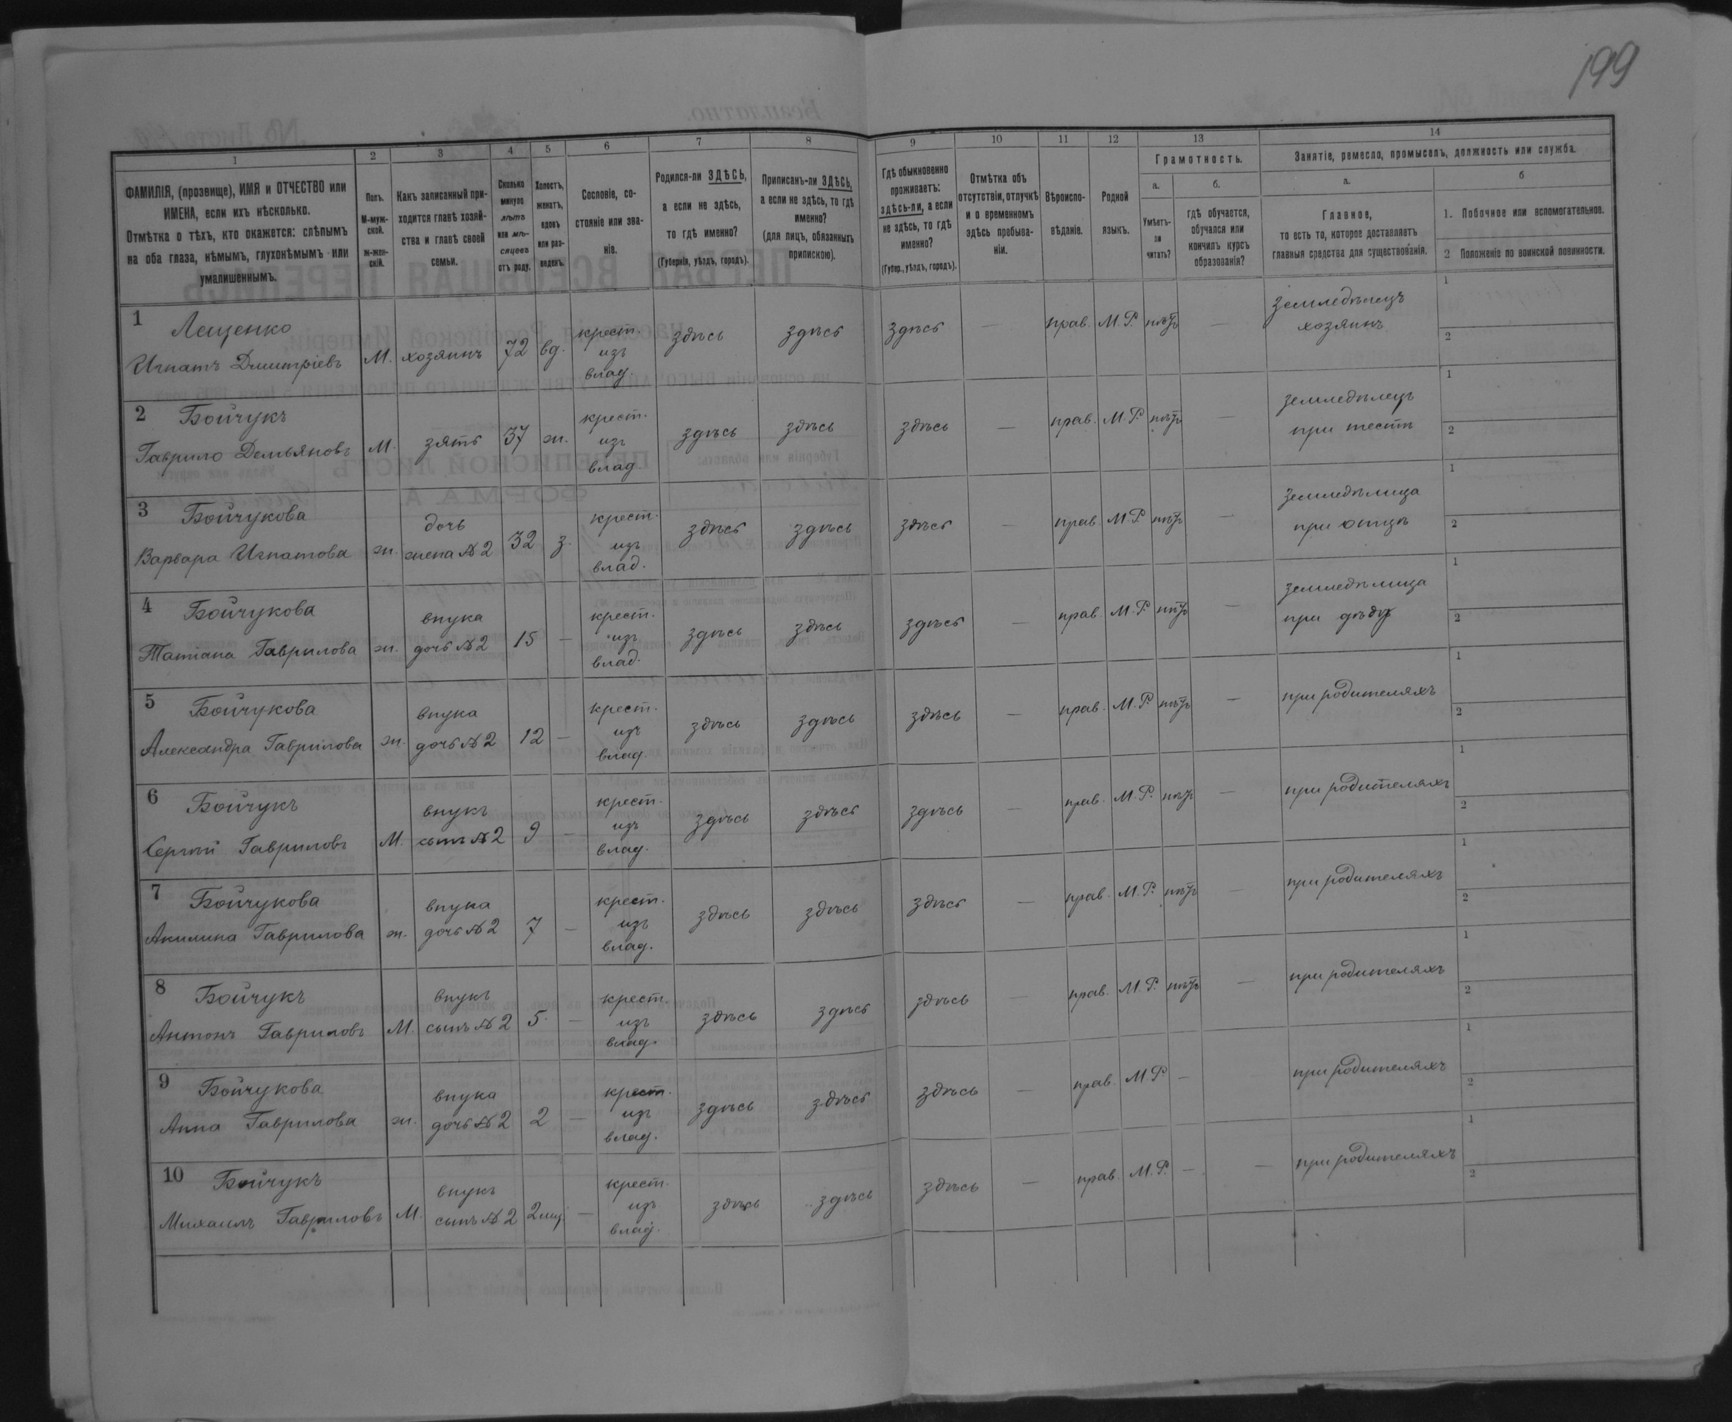 199
1
2
3
4
5
6
7
8
9
10
11
12
13
14
ФАМИЛІЯ, (прозвище), ИМЯ и ОТЧЕСТВО или
ИМЕНА, если ихъ нѣсколько.
Отмѣтка о тѣхъ, кто окажется: слѣпымъ
на оба глаза, нѣмымъ, глухонѣмымъ или
умалишеннымъ.
Полъ.
М-муж-
ской.
Ж-жен-
скій.
Какъ записанный при-
ходится главѣ хозяй-
ства и главѣ своей
семьи.
Сколько
минуло
лѣтъ
или мѣ-
сяцевъ
отъ роду.
Холостъ,
женатъ,
вдовъ
или раз-
веденъ.
Сословіе, со-
стояніе или зва-
ніе.
Родился-ли ЗДѢСЬ,
а если не здѣсь,
то гдѣ именно?
(Губернія, уѣздъ, городъ).
Приписанъ-ли ЗДѢСЬ,
а если не здѣсь, то гдѣ
именно?
(для лицъ, обязанныхъ
припискою).
Гдѣ обыкновенно
проживаетъ:
здѣсь-ли, а если
не здѣсь, то гдѣ
именно?
(Губер., уѣздъ, городъ).
Отмѣтка объ
отсутствіи, отлучкѣ
и о временномъ
здѣсь пребыва-
ніи.
Вѣроиспо-
вѣданіе.
Родной
языкъ.
Грамотность.
а.
Умѣетъ-
ли
читать?
б.
гдѣ обучается,
обучался или
кончилъ курсъ
образованія?
Занятіе, ремесло, промыселъ, должность или служба.
а.
Главное,
то есть то, которое доставляетъ
главныя средства для существованія.
б
1. Побочное или вспомогательное.
2 Положеніе по воинской повинности.
1 Лещенко
Игнатъ Дмитріевъ М. хозяинъ 72 вд. крест. изъ влад. здѣсь здѣсь здѣсь — прав. М.Р. нѣтъ — земледѣлецъ хозяинъ 1 2
2 Бойчукъ
Гаврило Демьяновъ М. зять 37 ж. крест. изъ влад. здѣсь здѣсь здѣсь — прав. М.Р. нѣтъ — земледѣлецъ при тестѣ 1 2
3 Бойчукова
Варвара Игнатова ж. дочь жена №2 32 з. крест. изъ влад. здѣсь здѣсь здѣсь — прав. М.Р. нѣтъ — земледѣлица при отцѣ 1 2
4 Бойчукова
Татіана Гаврилова ж. внука дочь №2 15 — крест. изъ влад. здѣсь здѣсь здѣсь — прав. М.Р. нѣтъ — земледѣлица при дѣду 1 2
5 Бойчукова
Александра Гаврилова ж. внука дочь №2 12 — крест. изъ влад. здѣсь здѣсь здѣсь — прав. М.Р. нѣтъ — при родителяхъ 1 2
6 Бойчукъ
Сергій Гавриловъ М. внукъ сынъ №2 9 — крест. изъ влад. здѣсь здѣсь здѣсь — прав. М.Р. нѣтъ — при родителяхъ 1 2
7 Бойчукова
Акилина Гаврилова ж. внука дочь №2 7 — крест. изъ влад. здѣсь здѣсь здѣсь — прав. М.Р. нѣтъ — при родителяхъ 1 2
8 Бойчукъ
Антонъ Гавриловъ М. внукъ сынъ №2 5 — крест. изъ влад. здѣсь здѣсь здѣсь — прав. М.Р. нѣтъ — при родителяхъ 1 2
9 Бойчукова
Анна Гаврилова ж. внука дочь №2 2 — крест. изъ влад. здѣсь здѣсь здѣсь — прав. М.Р. — при родителяхъ 1 2
10 Бойчукъ
Михаилъ Гавриловъ М. внукъ сынъ №2 2 мц — крест. изъ влад. здѣсь здѣсь здѣсь — прав. М.Р. — — при родителяхъ 1 2